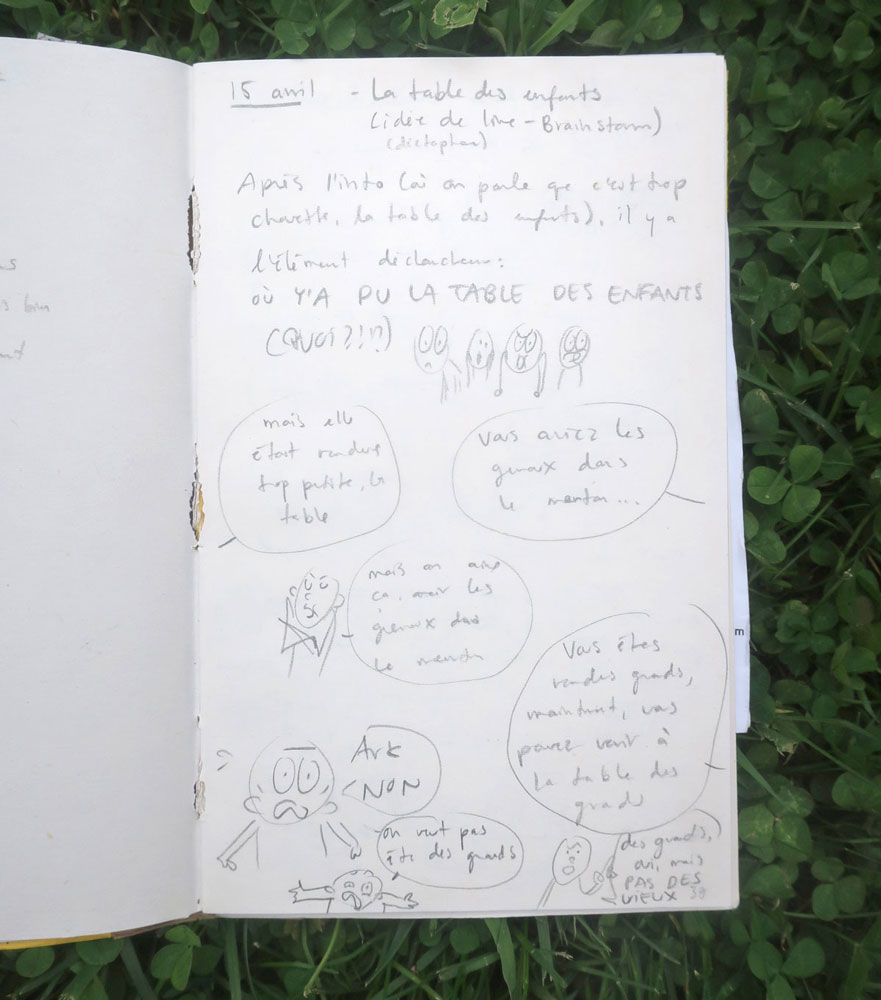 15 avril - La table des enfants
(idée de line - Brainstorm)
(dictaphon)
Après l'into (où on parle que c'est trop
chouette, la table des enfants), il y a
l'élément déclencheur:
où Y'A PU LA TABLE DES ENFANTS
(QUOI?!!?)
mais elle
était rendue
trop petite, la
table
vous aviez les
genoux dans
le menton...
mais on aime
ça, avoir les
genoux dans
le menton
Vous êtes
rendus grands,
maintenant, vous
pouvez venir à
la table des
grands
Ark
NON
on veut pas
être des grands
des grands,
oui, mais
PAS DES
VIEUX
m